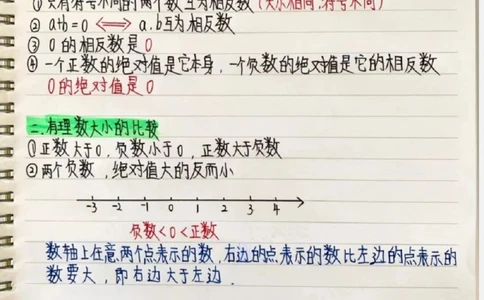 ①只有符号不同的两个数互为相反数(大小相同,符号不同)
②a+b=0 <=> a.b互为相反数
③ 0的相反数是0
④一个正数的绝对值是它本身,一个负数的绝对值是它的相反数
0的绝对值是0
二.有理数大小的比较
①正数大于0,负数小于0,正数大于负数
②两个负数,绝对值大的反而小
-3 -2 -1 0 1 2 3 4
负数<0<正数
数轴上任意两个点表示的数,右边的点表示的数比左边的点表示的
数要大,即右边大于左边.